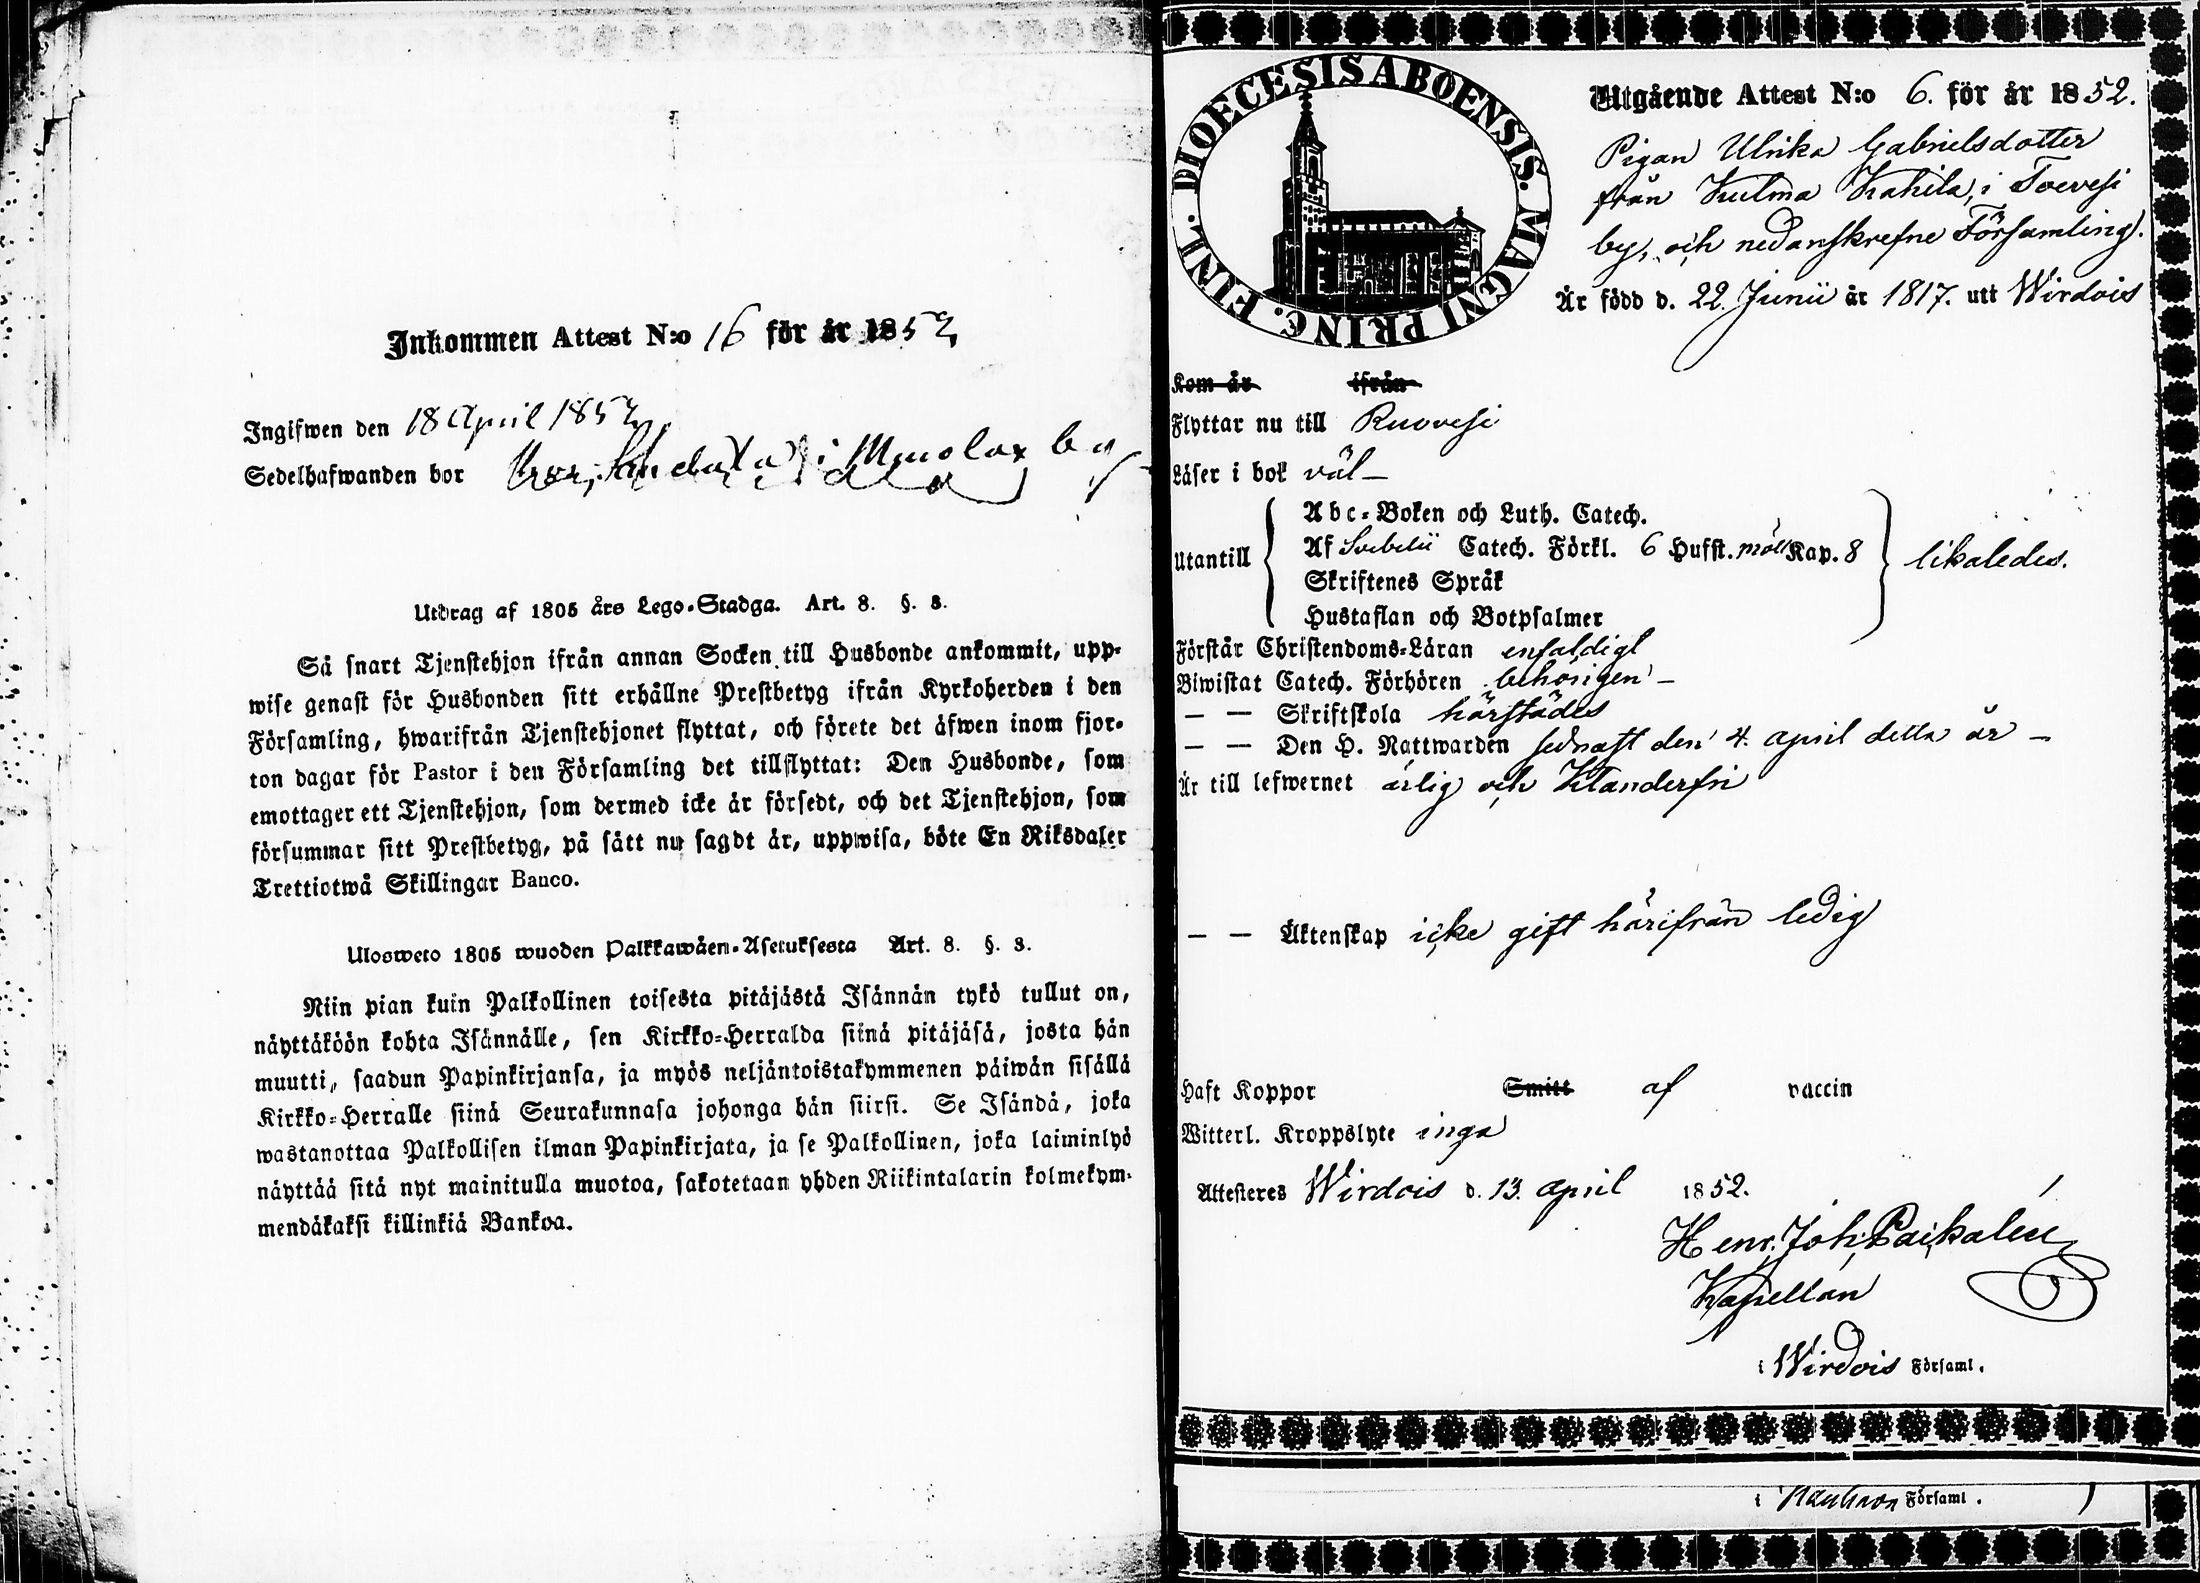 Inkommen Attest N:o 16 för år 1852
Ingifwen den 18 April 1852
Sedelhafwanden bor i by
Utdrag af 1805 års Lego-Stadga. Art. 8. §. 3.
Så snart Tjenstehjon ifrån annan Socken till Husbonde ankommit, upp-
wise genast för Husbonden sitt erhållne Prestbetyg ifrån Kyrkoherden i den
Församling, hwarifrån Tjenstehjonet flyttat, och förete det äfwen inom fjor-
ton dagar för Pastor i den Församling det tillflyttat: Den Husbonde, som
emottager ett Tjenstehjon, som dermed icke är försedt, och det Tjenstehjon, som
försummar sitt Prestbetyg, på sätt nu sagdt är, uppwisa, böte En Riksdaler
Trettiotwå Skillingar Banco.
Ulosweto 1805 wuoden Palkkawäen-Asetuksesta Art. 8. §. 3.
Niin pian kuin Palkollinen toisesta pitäjästä Isännän tykö tullut on,
näyttäköön kohta Isännälle, sen Kirkko-Herralda siinä pitäjäsä, josta hän
muutti, saadun Papinkirjansa, ja myös neljäntoistakymmenen päiwän sisällä
Kirkko-Herralle siinä Seurakunnasa johonga hän siirsi. Se Isändä, joka
wastanottaa Palkollisen ilman Papinkirjata, ja se Palkollinen, joka laiminlyö
näyttää sitä nyt mainitulla muotoa, sakotetaan yhden Riikintalarin kolmekym-
mendäkaksi killinkiä Bankoa.
DIOECESIS ABOENSIS. MAGNI PRINC. FINL.
Utgående Attest N:o 6. för år 1852.
Pigan Ulrika Gabrielsdotter
från Kulma Kahila, i Toevesi
by, och nedanskrefne Församling.
Är född d. 22 Junii år 1817. utt Wirdois
Kom år ifrån
Flyttar nu till Ruovesi
Läser i bok väl —
Utantill
Abc-Boken och Luth. Catech.
Af Svebelii Catech. Förkl. 6 Hufst. Kap. 8
Skriftenes Språk
Hustaflan och Botpsalmer
likaledes.
Förstår Christendoms-Läran enfaldigt
Biwistat Catech. Förhören behörigen —
— — Skriftskola härstädes
— — Den H. Nattwarden sednast den 4. april detta år —
Är till lefwernet ärlig och klanderfri
— — Äktenskap icke gift härifrån ledig
Haft Koppor Smitt af vaccin
Witterl. Kroppslyte inga
Attesteres Wirdois d. 13. april 1852.
Henr. Joh. Paikalén
Kapellan
i Wirdois Församl.
i Församl.